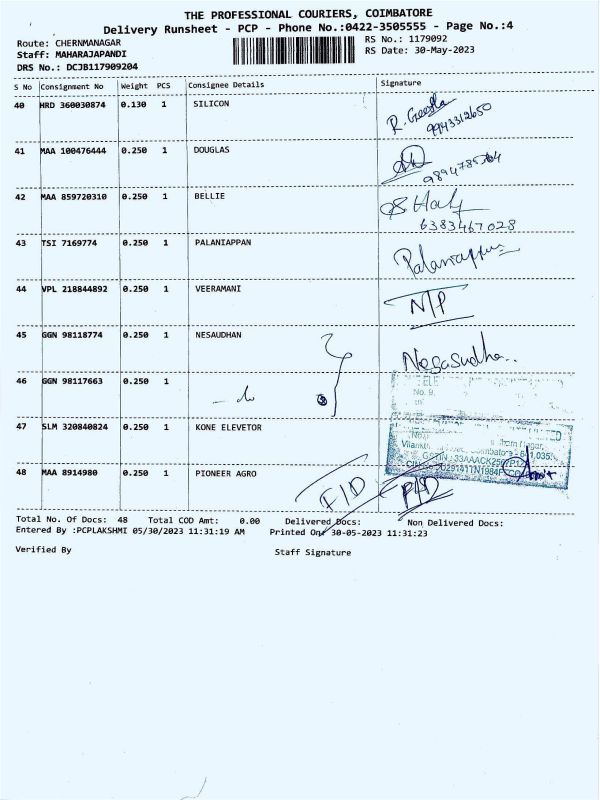 THE PROFESSIONAL COURIERS, COIMBATORE
Delivery Runsheet - PCP - Phone No.:0422-3505555 - Page No.:4
Route: CHERNMANAGAR RS No.: 1179092
Staff: MAHARAJAPANDI RS Date: 30-May-2023
DRS No.: DCJB117909204
S No Consignment No Weight PCS Consignee Details Signature
40 HRD 360030874 0.130 1 SILICON R. Geetha
9943312650
41 MAA 100476444 0.250 1 DOUGLAS
9894785764
42 MAA 859720310 0.250 1 BELLIE
6383467028
43 TSI 7169774 0.250 1 PALANIAPPAN Palaniappan
44 VPL 218844892 0.250 1 VEERAMANI N/P
45 GGN 98118774 0.250 1 NESAUDHAN Negasudha..
46 GGN 98117663 0.250 1
47 SLM 320840824 0.250 1 KONE ELEVETOR
48 MAA 8914980 0.250 1 PIONEER AGRO F/D
Total No. Of Docs: 48 Total COD Amt: 0.00 Delivered Docs: Non Delivered Docs:
Entered By :PCPLAKSHMI 05/30/2023 11:31:19 AM Printed On: 30-05-2023 11:31:23
Verified By Staff Signature